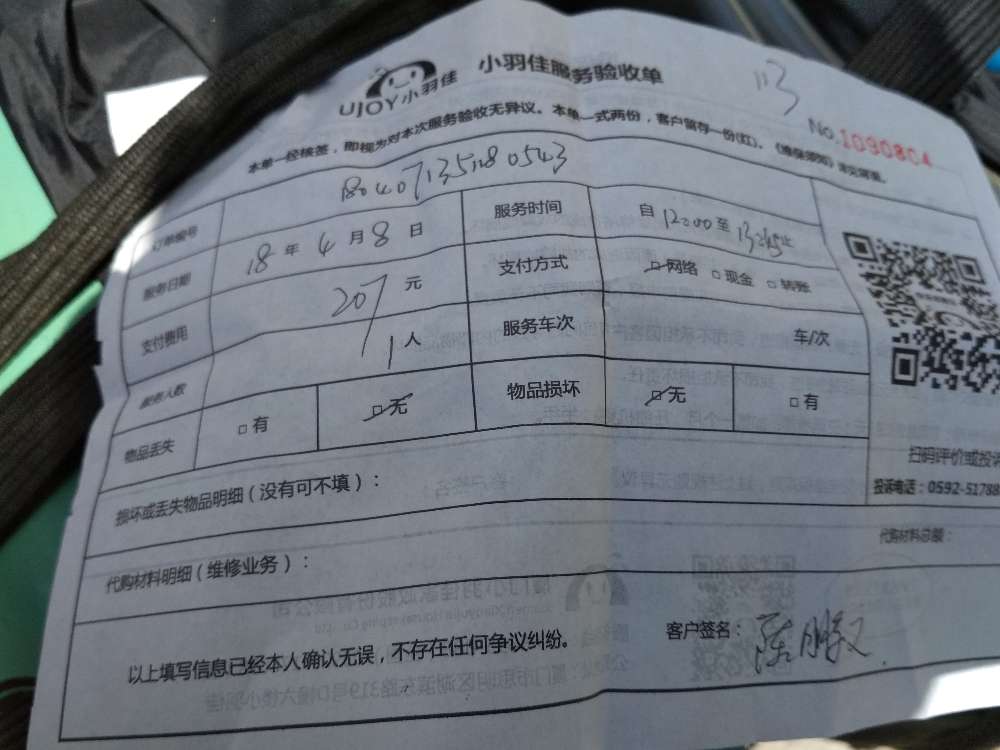 UJOY小羽佳 小羽佳服务验收单
113
No.1090804
本单一经核签，即视为对本次服务验收无异议。本单一式两份，客户留存一份(红)。《维保须知》详见背面。
订单编号
服务日期 18 年 4 月 8 日 服务时间 自 12:00 至 13:45 止
支付费用 207 元 支付方式 □网络 □现金 □转账
服务人数 1 人 服务车次 车/次
物品丢失 □有 □无 物品损坏 □无 □有
扫码评价或投诉
投诉电话：0592-51788
损坏或丢失物品明细（没有可不填）：
代购材料明细（维修业务）： 代购材料总额：
以上填写信息已经本人确认无误，不存在任何争议纠纷。 客户签名：